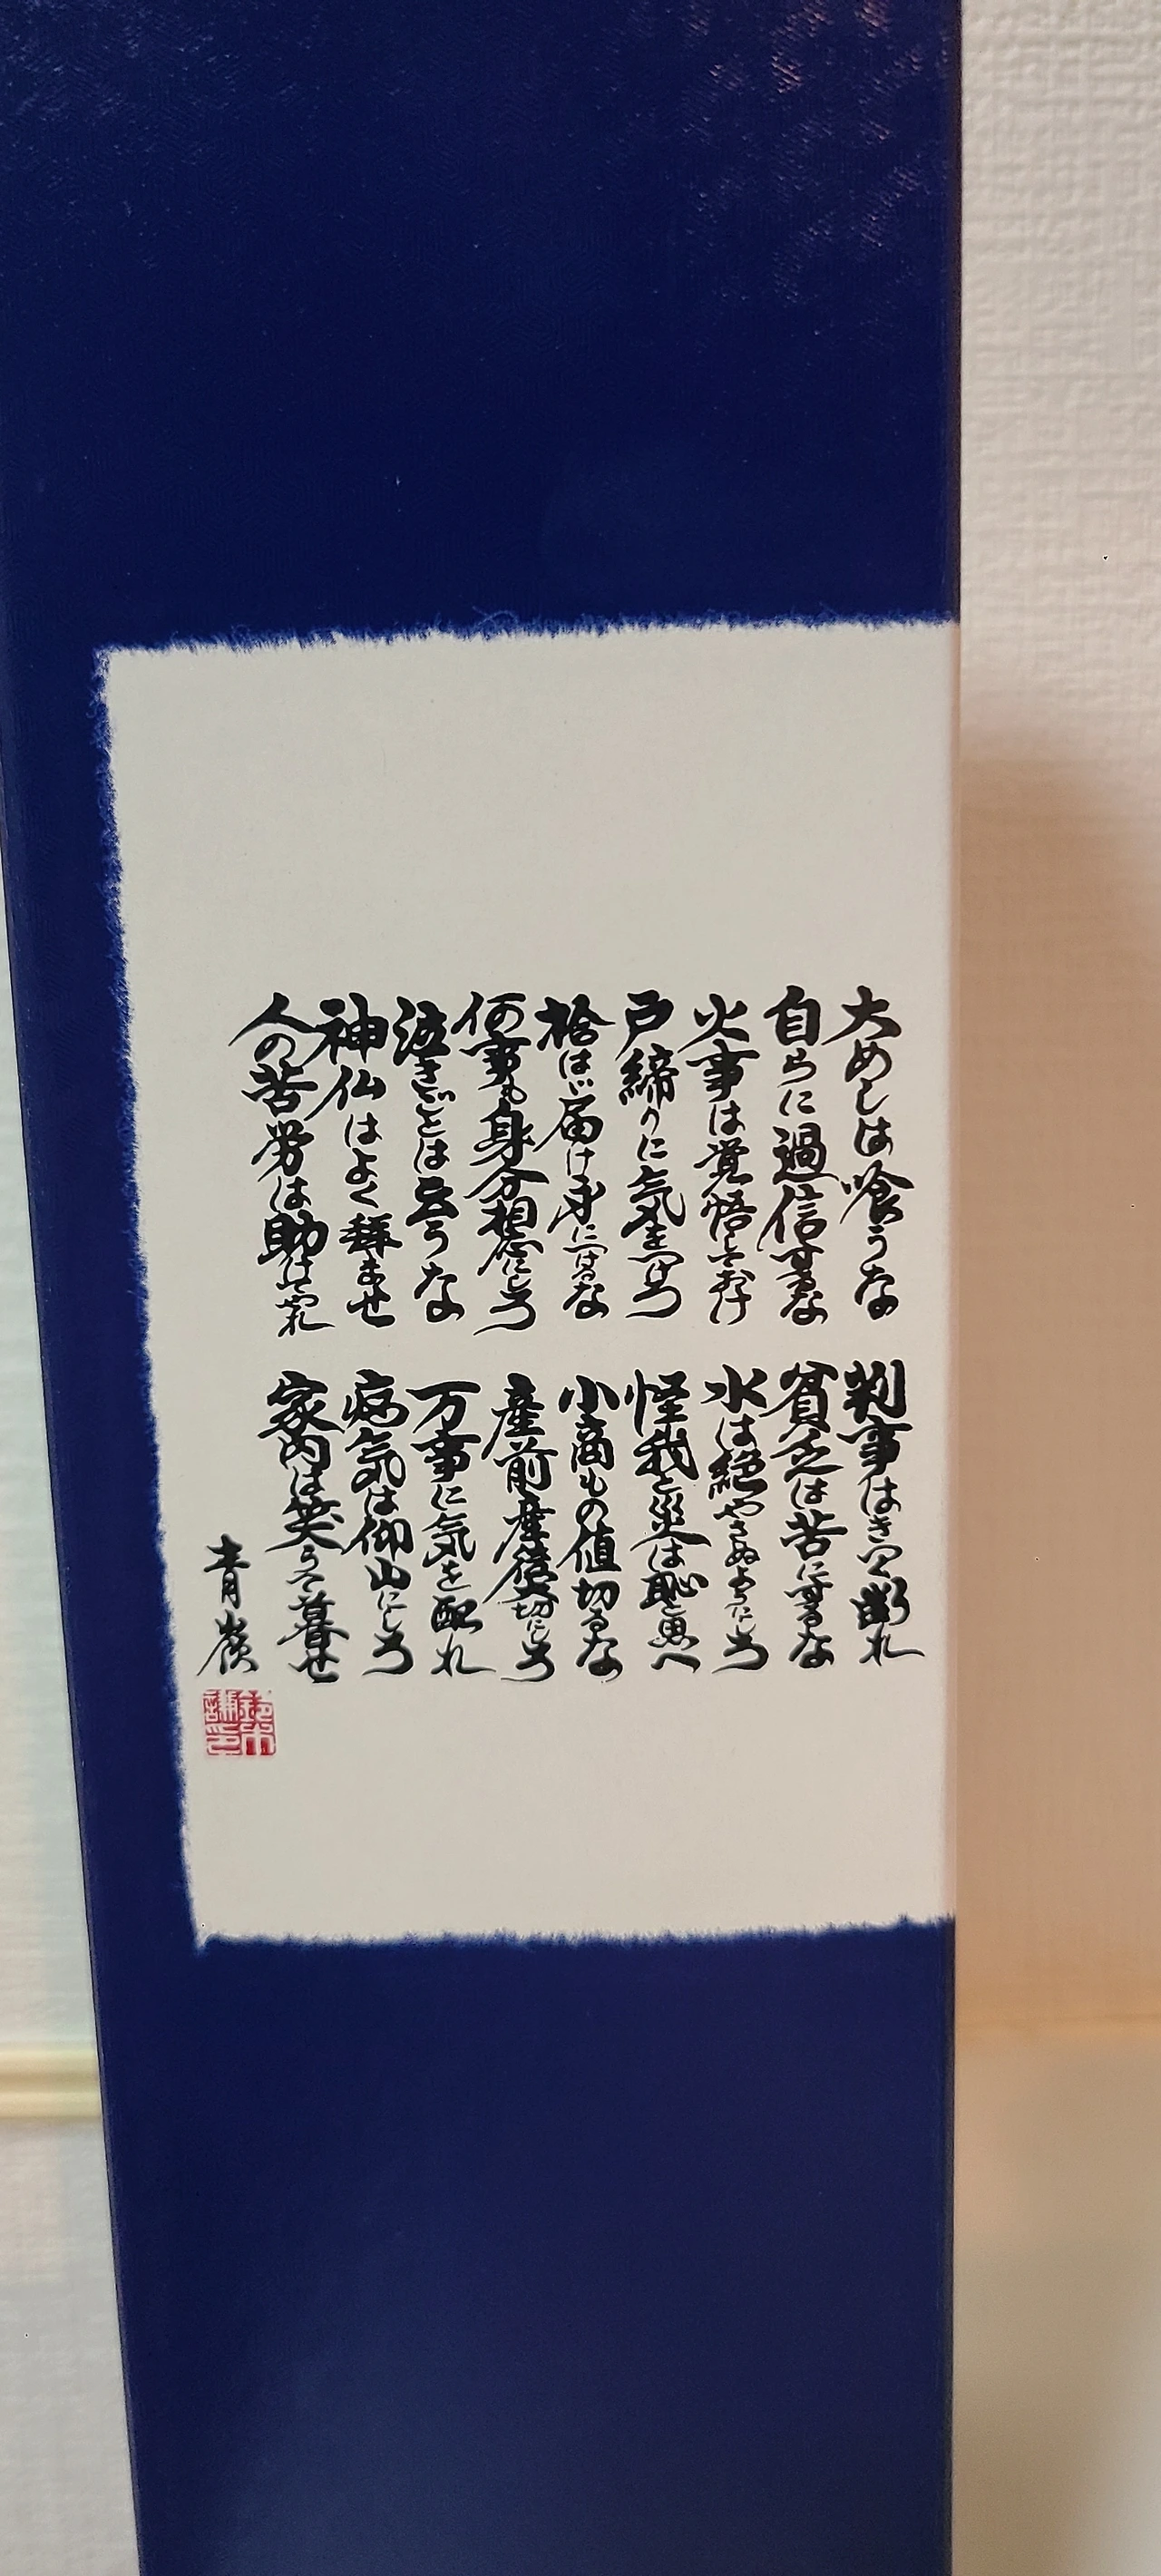 大めしは喰うな
自らに過信するな
火事は覚悟しておけ
戸締りに気をつけろ
拾はゞ届け身につけるな
何事も身分相応にしろ
泣きごとは云うな
神仏はよく拝ませ
人の苦労は助けてやれ
判事はきつく断れ
貧乏は苦にするな
水は絶やさぬようにしろ
怪我と災は恥と思へ
小商もの値切るな
産前産後大切にしろ
万事に気を配れ
病気は仰山にしろ
家内は笑うて暮せ
青嶺